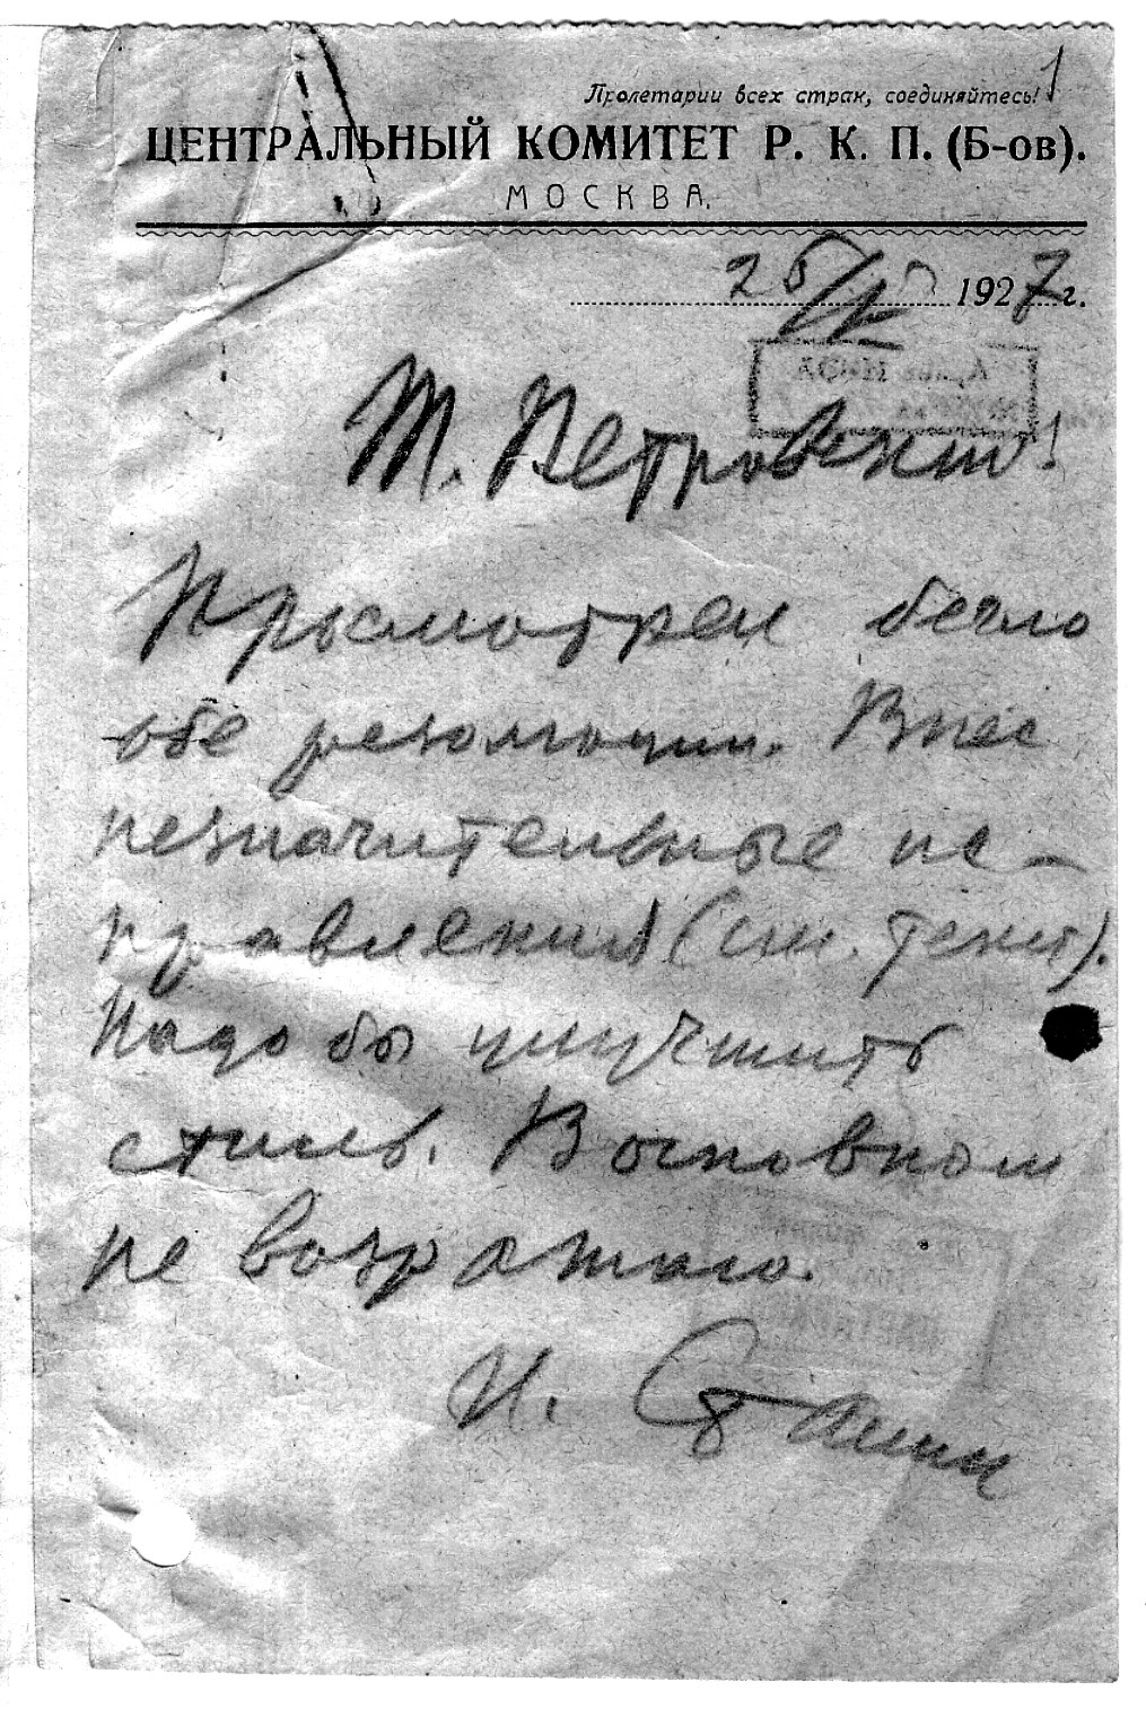 1
Пролетарии всех стран, соединяйтесь!
ЦЕНТРАЛЬНЫЙ КОМИТЕТ Р. К. П. (Б-ов).
МОСКВА.
1927 г.
Т. Петровский!
Просмотрел бегло
обе резолюции. Внес
незначительные ис-
правления (см. текст).
Надо бы улучшить
стиль. В основном
не возражаю.
И. Сталин